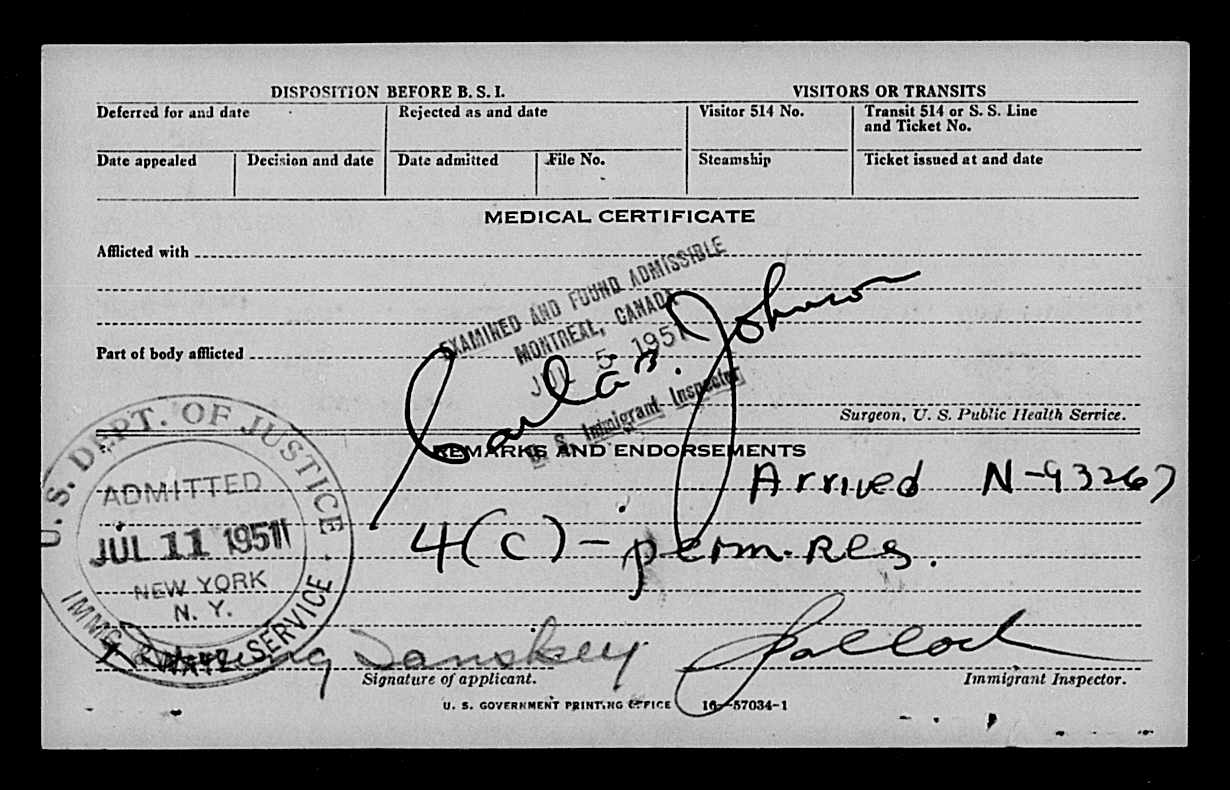 DISPOSITION BEFORE B. S. I.
VISITORS OR TRANSITS
Deferred for and date
Rejected as and date
Visitor 514 No.
Transit 514 or S. S. Line
and Ticket No.
Date appealed
Decision and date
Date admitted
File No.
Steamship
Ticket issued at and date
MEDICAL CERTIFICATE
Afflicted with
EXAMINED AND FOUND ADMISSIBLE
MONTREAL, CANADA
JUL 5 1951
U. S. Immigrant Inspector
Johnson
Part of body afflicted
Surgeon, U. S. Public Health Service.
REMARKS AND ENDORSEMENTS
Arrived N-93267
4(c) - perm. Res.
U. S. DEPT. OF JUSTICE
ADMITTED
JUL 11 1951
NEW YORK
N. Y.
SERVICE
Danskey
Signature of applicant.
Immigrant Inspector.
U. S. GOVERNMENT PRINTING OFFICE 16-57034-1